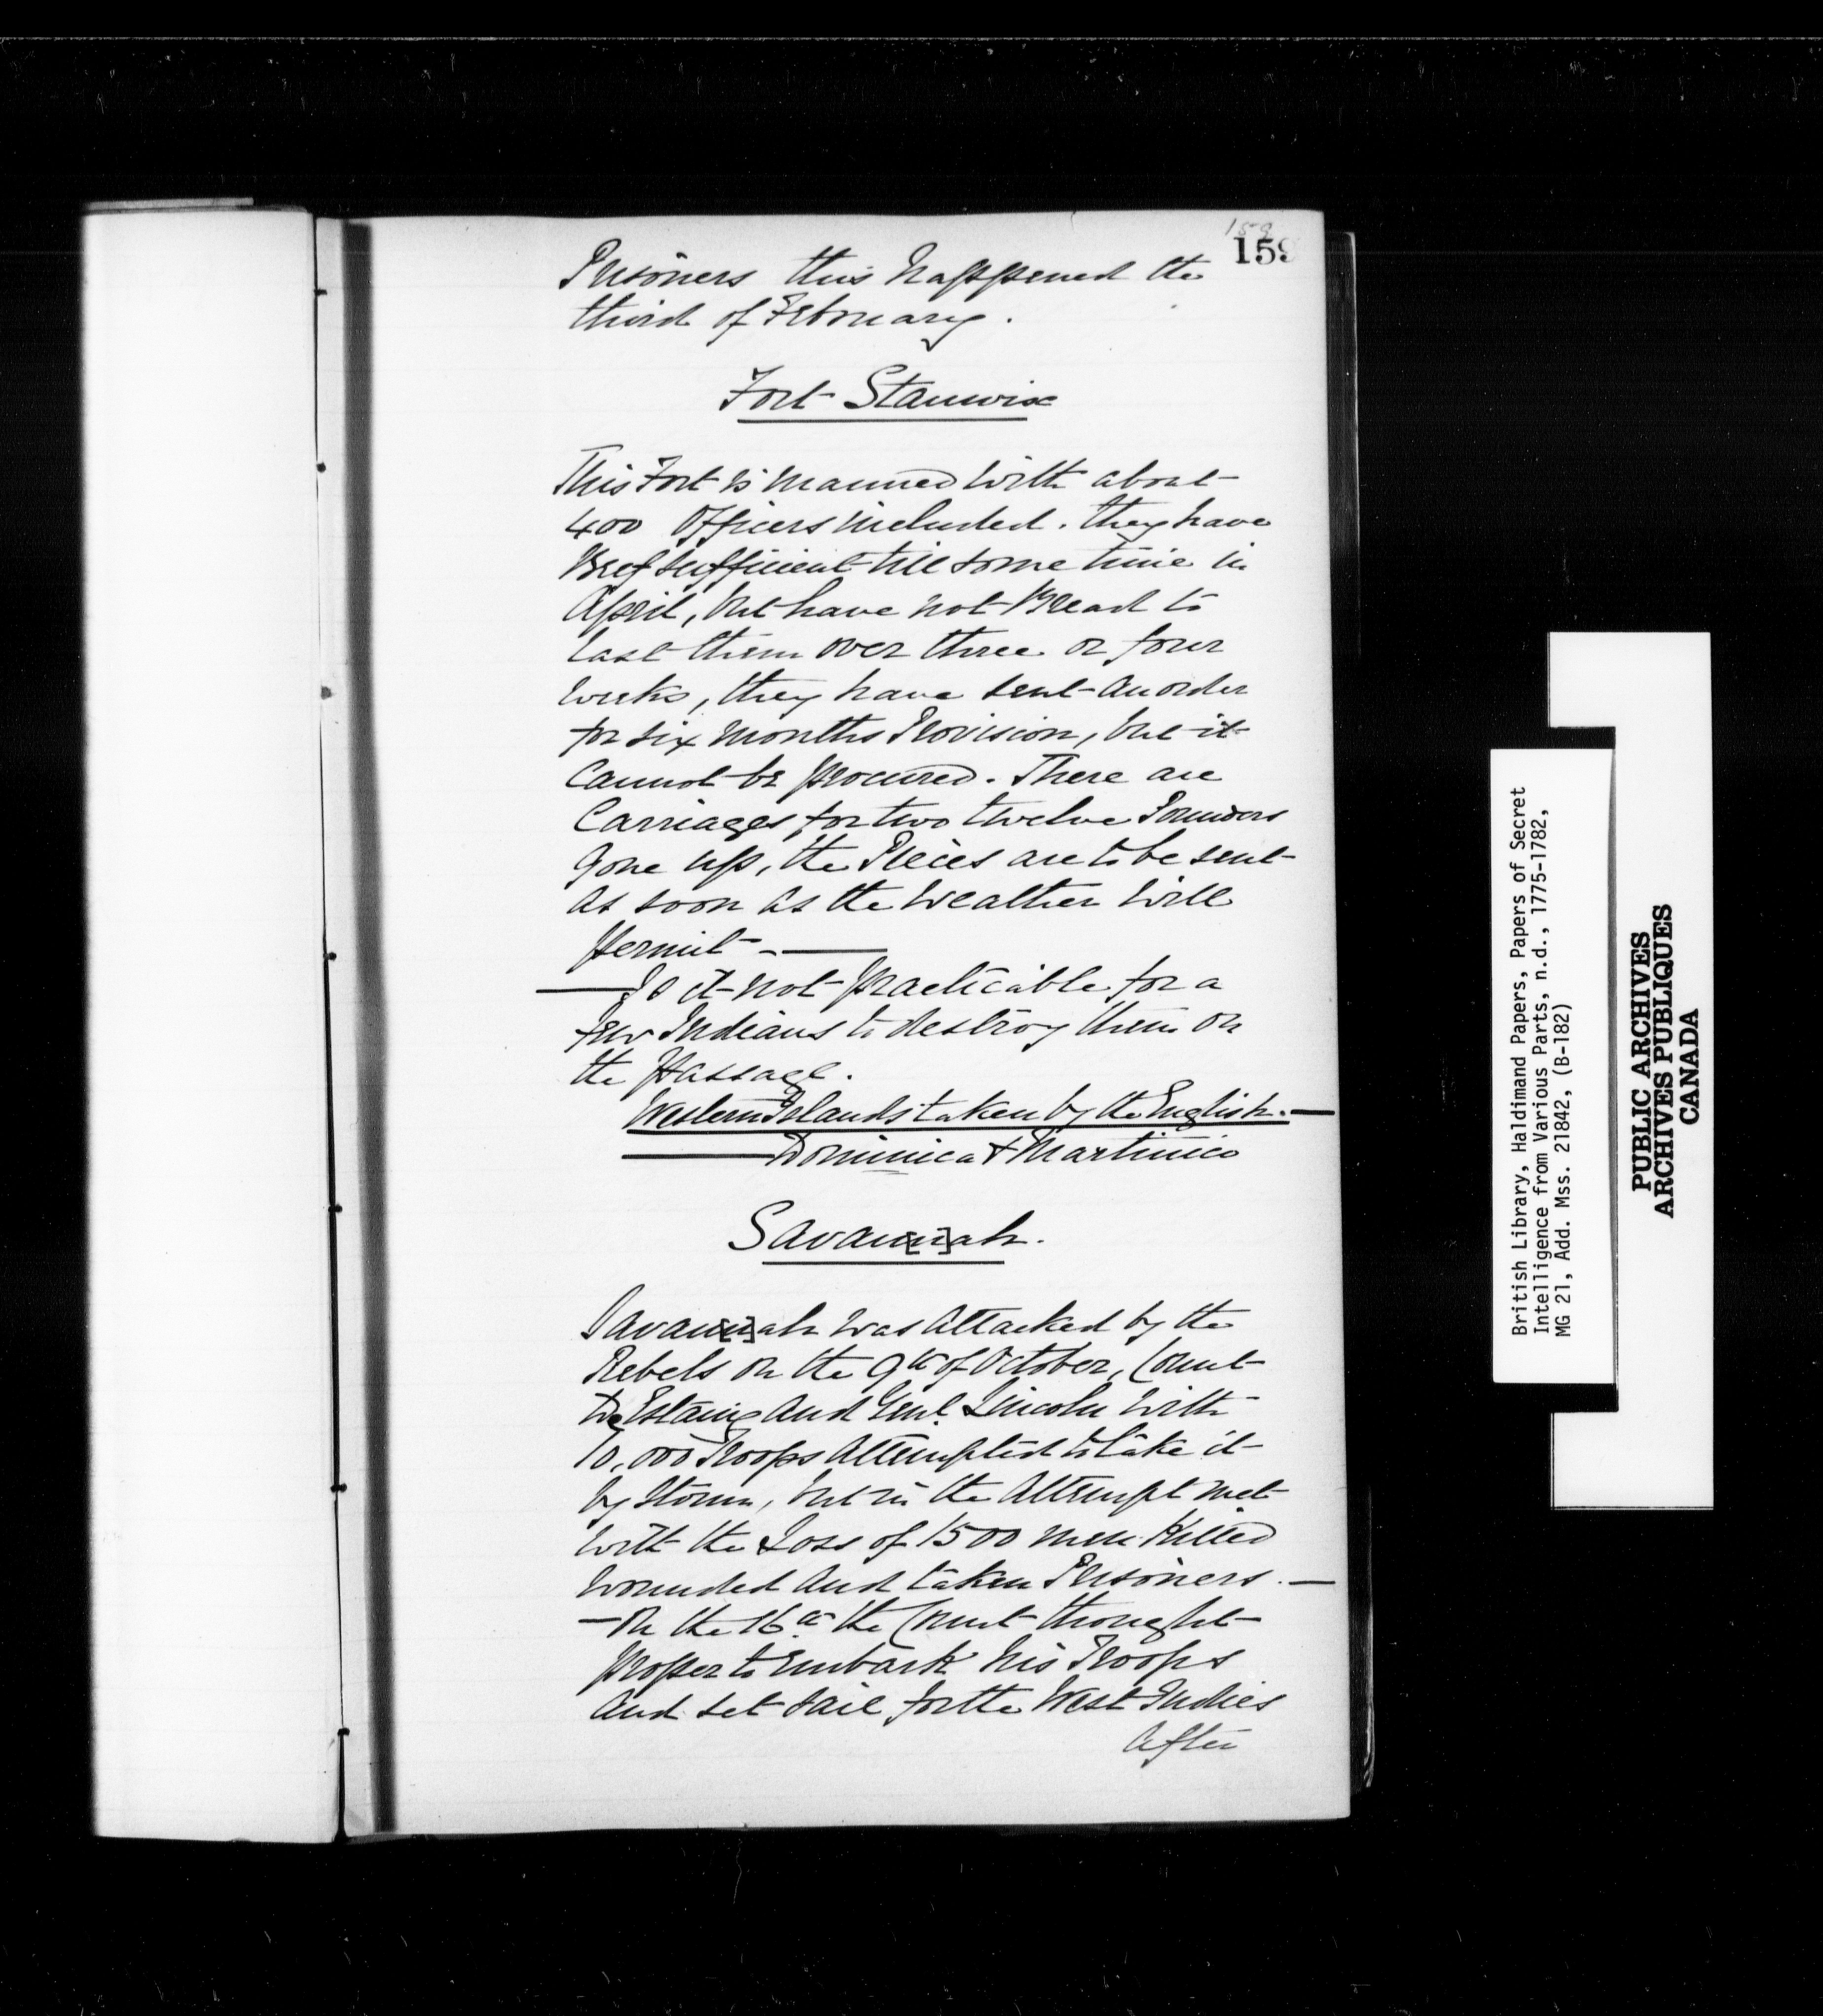 159
159
Prisoners this happened the
third of February.
Fort Stanwix
This Fort is manned with about
400 Officers included. they have
Beef sufficient till some time in
April, but have not Bread to
last them over three or four
weeks, they have sent an order
for six months Provision, but it
Cannot be procured. There are
Carriages for two twelve Pounders
gone up, the Pieces are to be sent
as soon as the weather will
permit - —
— Is it not practicable for a
few Indians to destroy them on
the passage.
Western Islands taken by the English. —
— Dominica & Martinico
Savan[n]ah.
Savan[n]ah was attacked by the
Rebels on the 9th of October, Count
De Estaing and Genl. Lincoln with
10,000 Troops attempted to take it
by storm, but in the attempt met
with the Loss of 1500 men Killed
wounded and taken Prisoners. —
— On the 16th the Count thought
proper to embark his Troops
and set sail for the West Indies
After
British Library, Haldimand Papers, Papers of Secret
Intelligence from Various Parts, n.d., 1775-1782,
MG 21, Add. Mss. 21842, (B-182)
PUBLIC ARCHIVES
ARCHIVES PUBLIQUES
CANADA